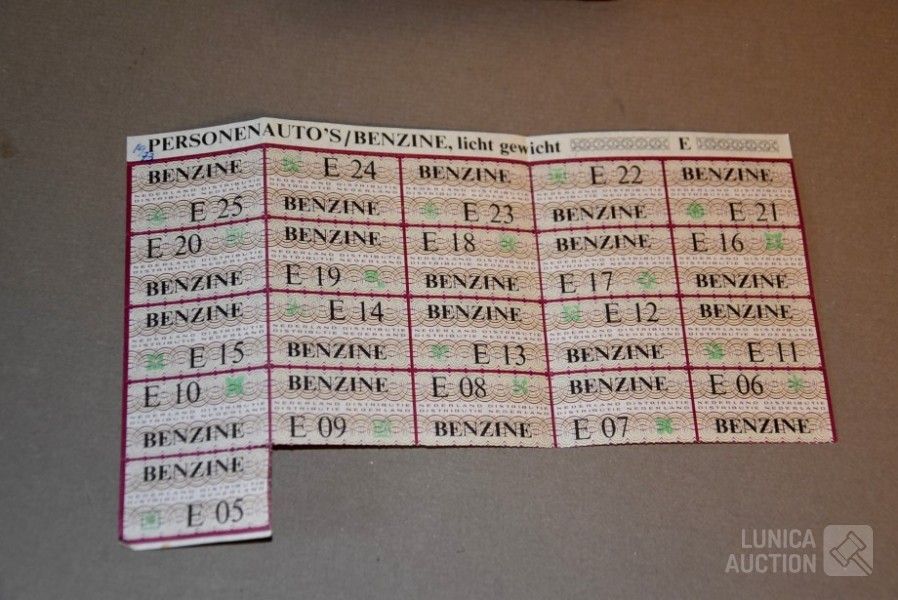 PERSONENAUTO'S/BENZINE, licht gewicht E
BENZINE E 24 BENZINE E 22 BENZINE
E 25 BENZINE E 23 BENZINE E 21
E 20 BENZINE E 18 BENZINE E 16
BENZINE E 19 BENZINE E 17 BENZINE
BENZINE E 14 BENZINE E 12 BENZINE
E 15 BENZINE E 13 BENZINE E 11
E 10 BENZINE E 08 BENZINE E 06
BENZINE E 09 BENZINE E 07 BENZINE
BENZINE
E 05
LUNICA
AUCTION